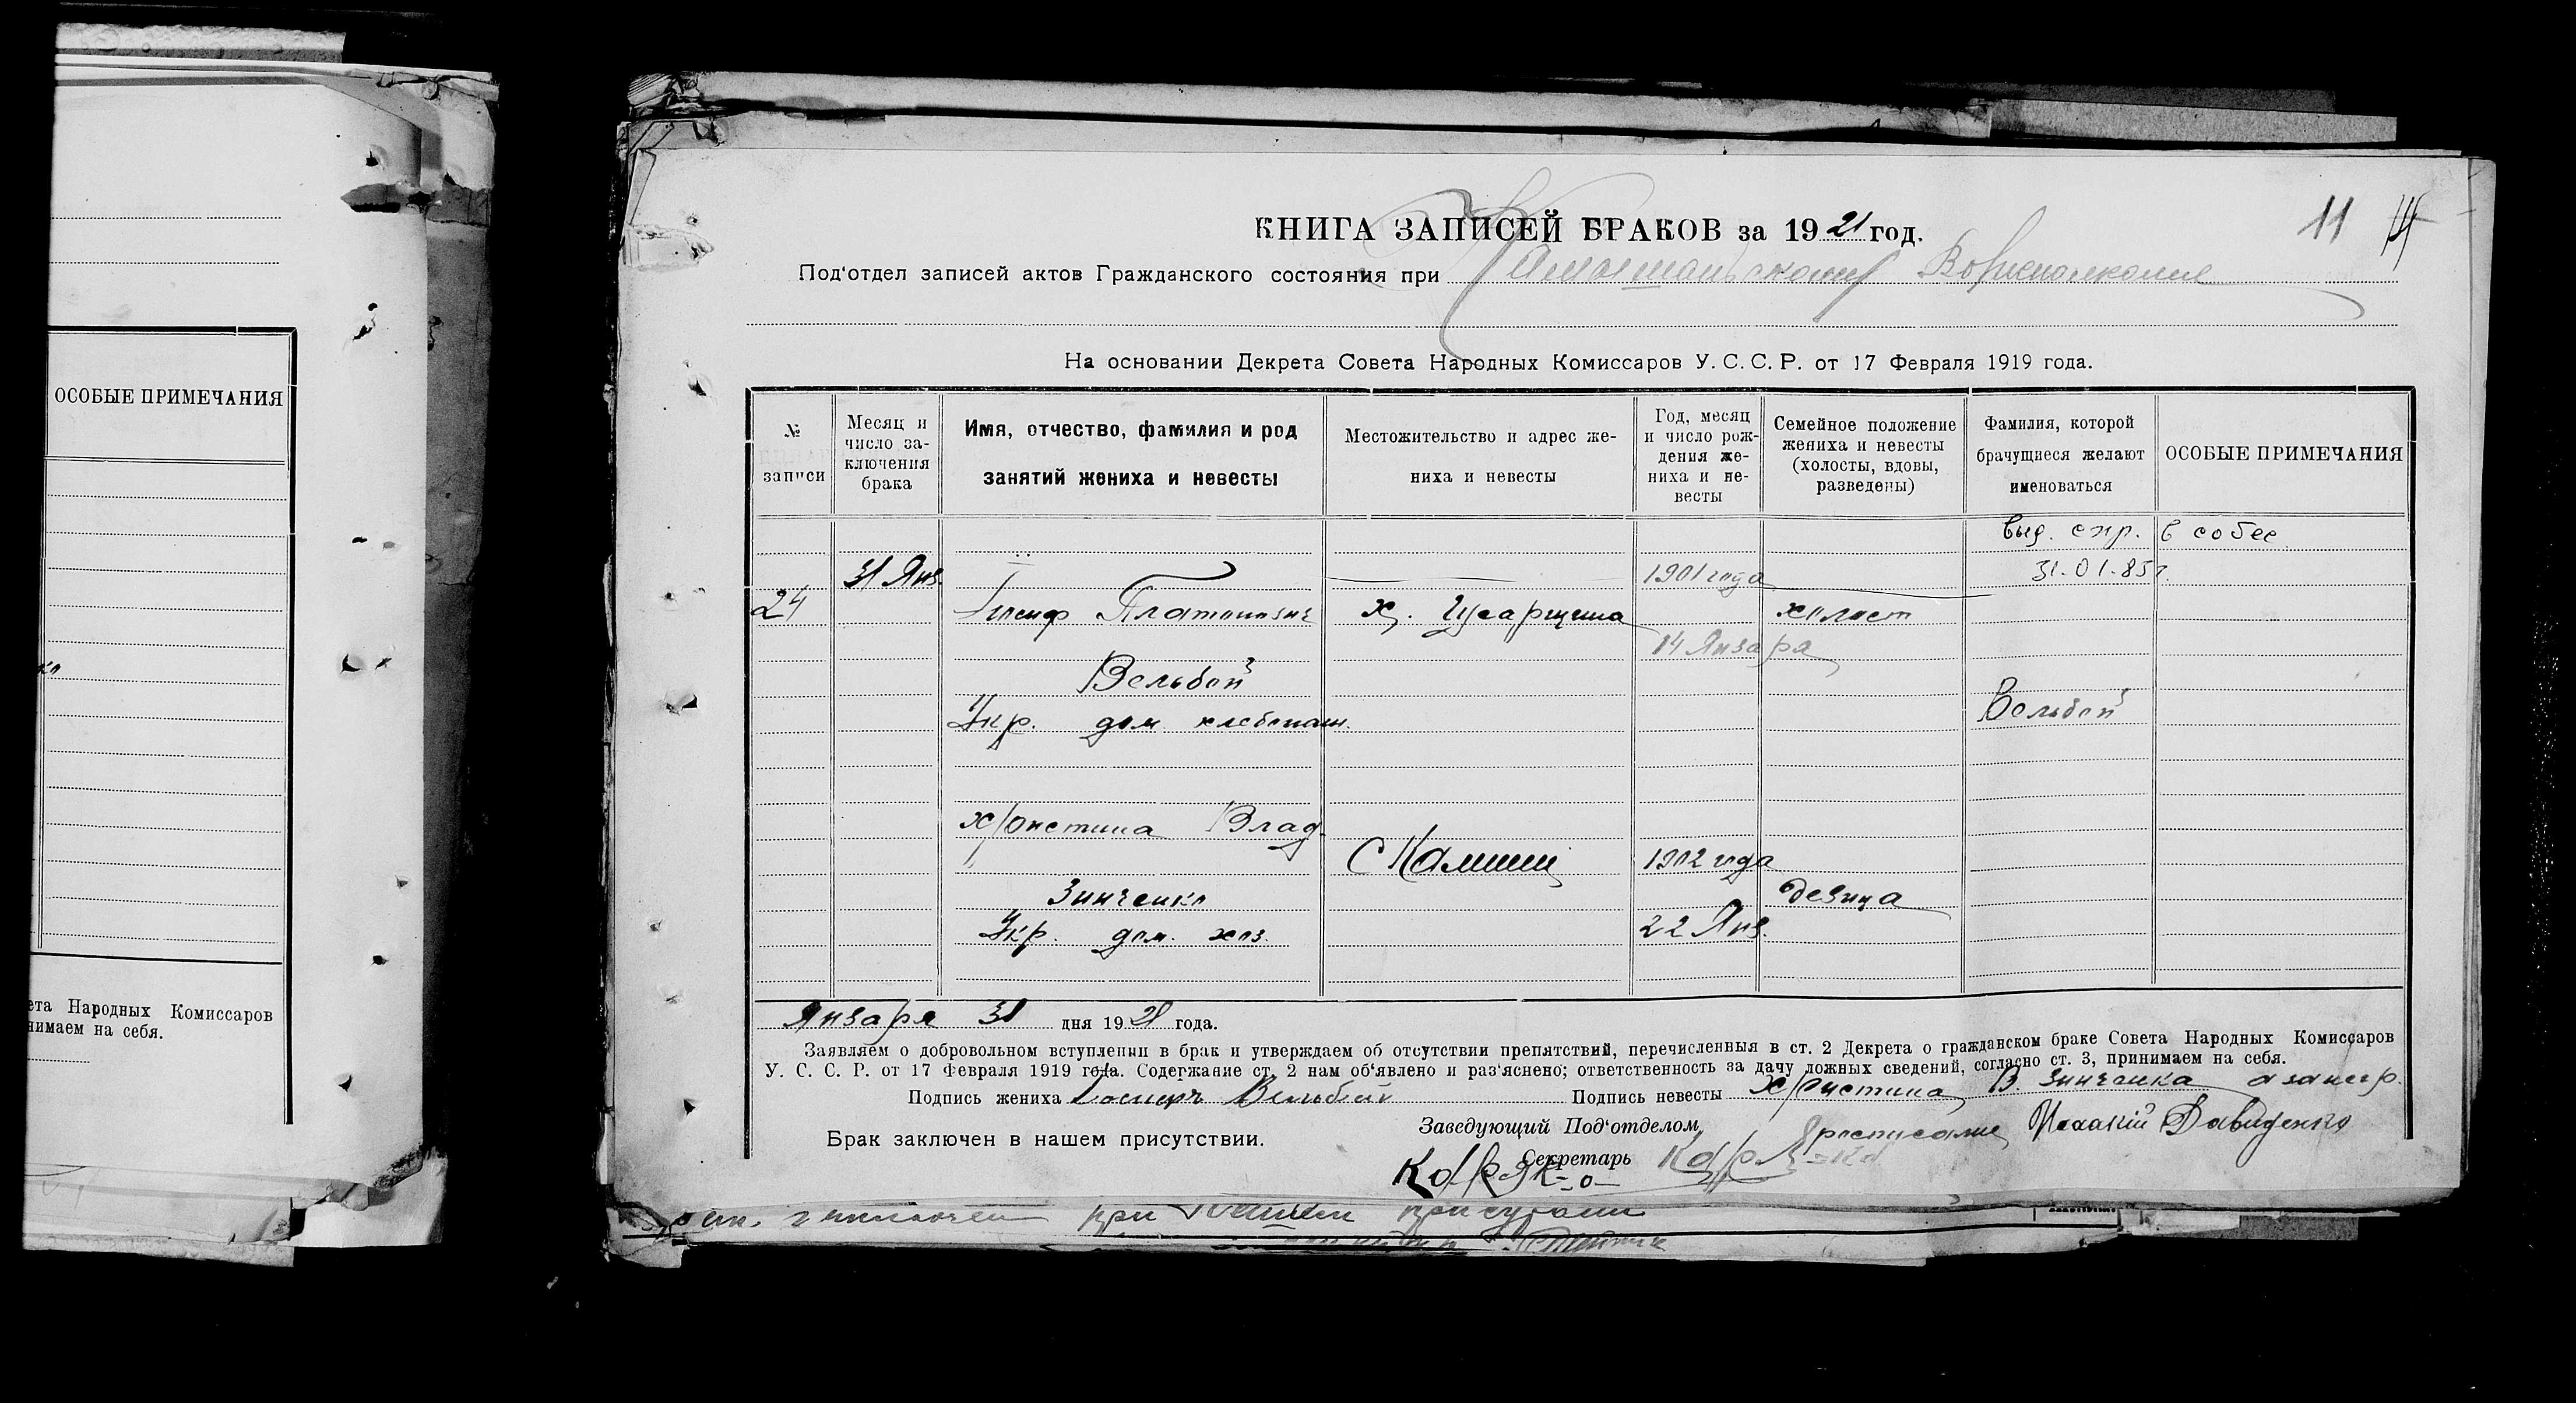 ОСОБЫЕ ПРИМЕЧАНИЯ
ета Народных Комиссаров
нимаем на себя.
11
КНИГА ЗАПИСЕЙ БРАКОВ за 1921 год.
Под'отдел записей актов Гражданского состояния при
На основании Декрета Совета Народных Комиссаров У.С.С.Р. от 17 Февраля 1919 года.
№ записи
Месяц и число за-
ключения
брака
Имя, отчество, фамилия и род
занятий жениха и невесты
Местожительство и адрес же-
ниха и невесты
Год, месяц
и число рож-
дения же-
ниха и не-
весты
Семейное положение
жениха и невесты
(холосты, вдовы,
разведены)
Фамилия, которой
брачущиеся желают
именоваться
ОСОБЫЕ ПРИМЕЧАНИЯ
Выд. спр. в собес
31 Янв. 1901 года 31.01.85г.
24 Иосиф Платонович х. Гусарщина холост
14 Января
Вельбой
Укр. дом. хлебопаш. Вельбой
Христина Влад.
С 1902 года
Зинченко девица
Укр. дом. хоз. 22 Янв.
Января 31 дня 1921 года.
Заявляем о добровольном вступлении в брак и утверждаем об отсутствии препятствий, перечисленныя в ст. 2 Декрета о гражданском браке Совета Народных Комиссаров
У. С. С. Р. от 17 Февраля 1919 года. Содержание ст. 2 нам об'явлено и раз'яснено; ответственность за дачу ложных сведений, согласно ст. 3, принимаем на себя.
Подпись жениха Вельбой Подпись невесты Христина В. Зинченка а занегр.
Брак заключен в нашем присутствии.
Заведующий Под'отделом
росписалис Исаакій Давиденко
Секретарь